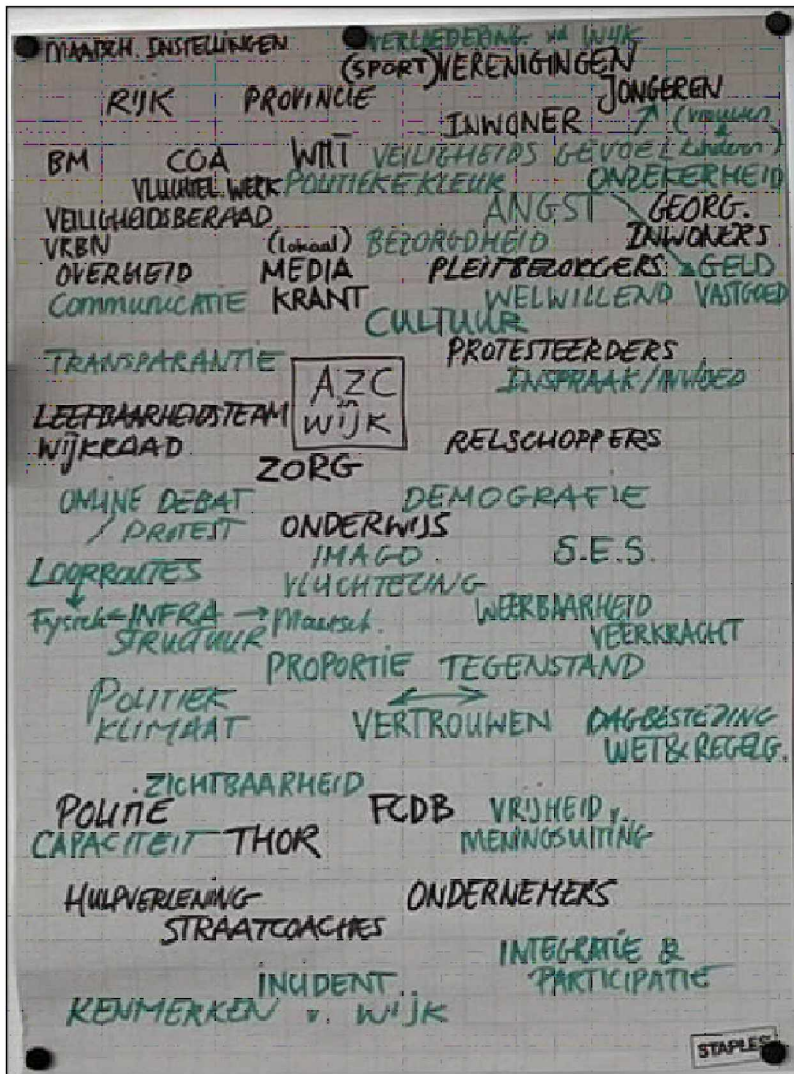 MAATSCH. INSTELLINGEN
VERLIEDERING vd WIJK
(SPORT) VERENIGINGEN
JONGEREN
RIJK PROVINCIE
INWONER
(vrouwen & kinderen)
BM COA WMT VEILIGHEIDS GEVOEL
VLUCHTEL. WERK POLITIEKE KLEUR ONZEKERHEID
VEILIGHEIDSBERAAD
ANGST GEORG.
INWONERS
VRBN (lokaal) BEZORGDHEID
OVERHEID MEDIA PLEITBEZORGERS GELD
COMMUNICATIE KRANT WELWILLEND VASTGOED
CULTUUR
TRANSPARANTIE
PROTESTEERDERS
INSPRAAK/INVLOED
AZC
in
WIJK
LEEFBAARHEIDSTEAM
WIJKRAAD
RELSCHOPPERS
ZORG
ONLINE DEBAT
/ PROTEST
DEMOGRAFIE
ONDERWIJS
IMAGO
VLUCHTELING
S.E.S.
LOOPROUTES
Fysiek ← INFRA → Maatsch.
STRUCTUUR
WEERBAARHEID
VEERKRACHT
PROPORTIE TEGENSTAND
POLITIEK
KLIMAAT
VERTROUWEN
DAGBESTEDING
WET & REGELG.
ZICHTBAARHEID
POLITIE FCDB VRIJHEID v.
CAPACITEIT THOR MENINGSUITING
HULPVERLENING ONDERNEMERS
STRAATCOACHES
INTEGRATIE &
PARTICIPATIE
INCIDENT..
KENMERKEN v. WIJK
STAPLES